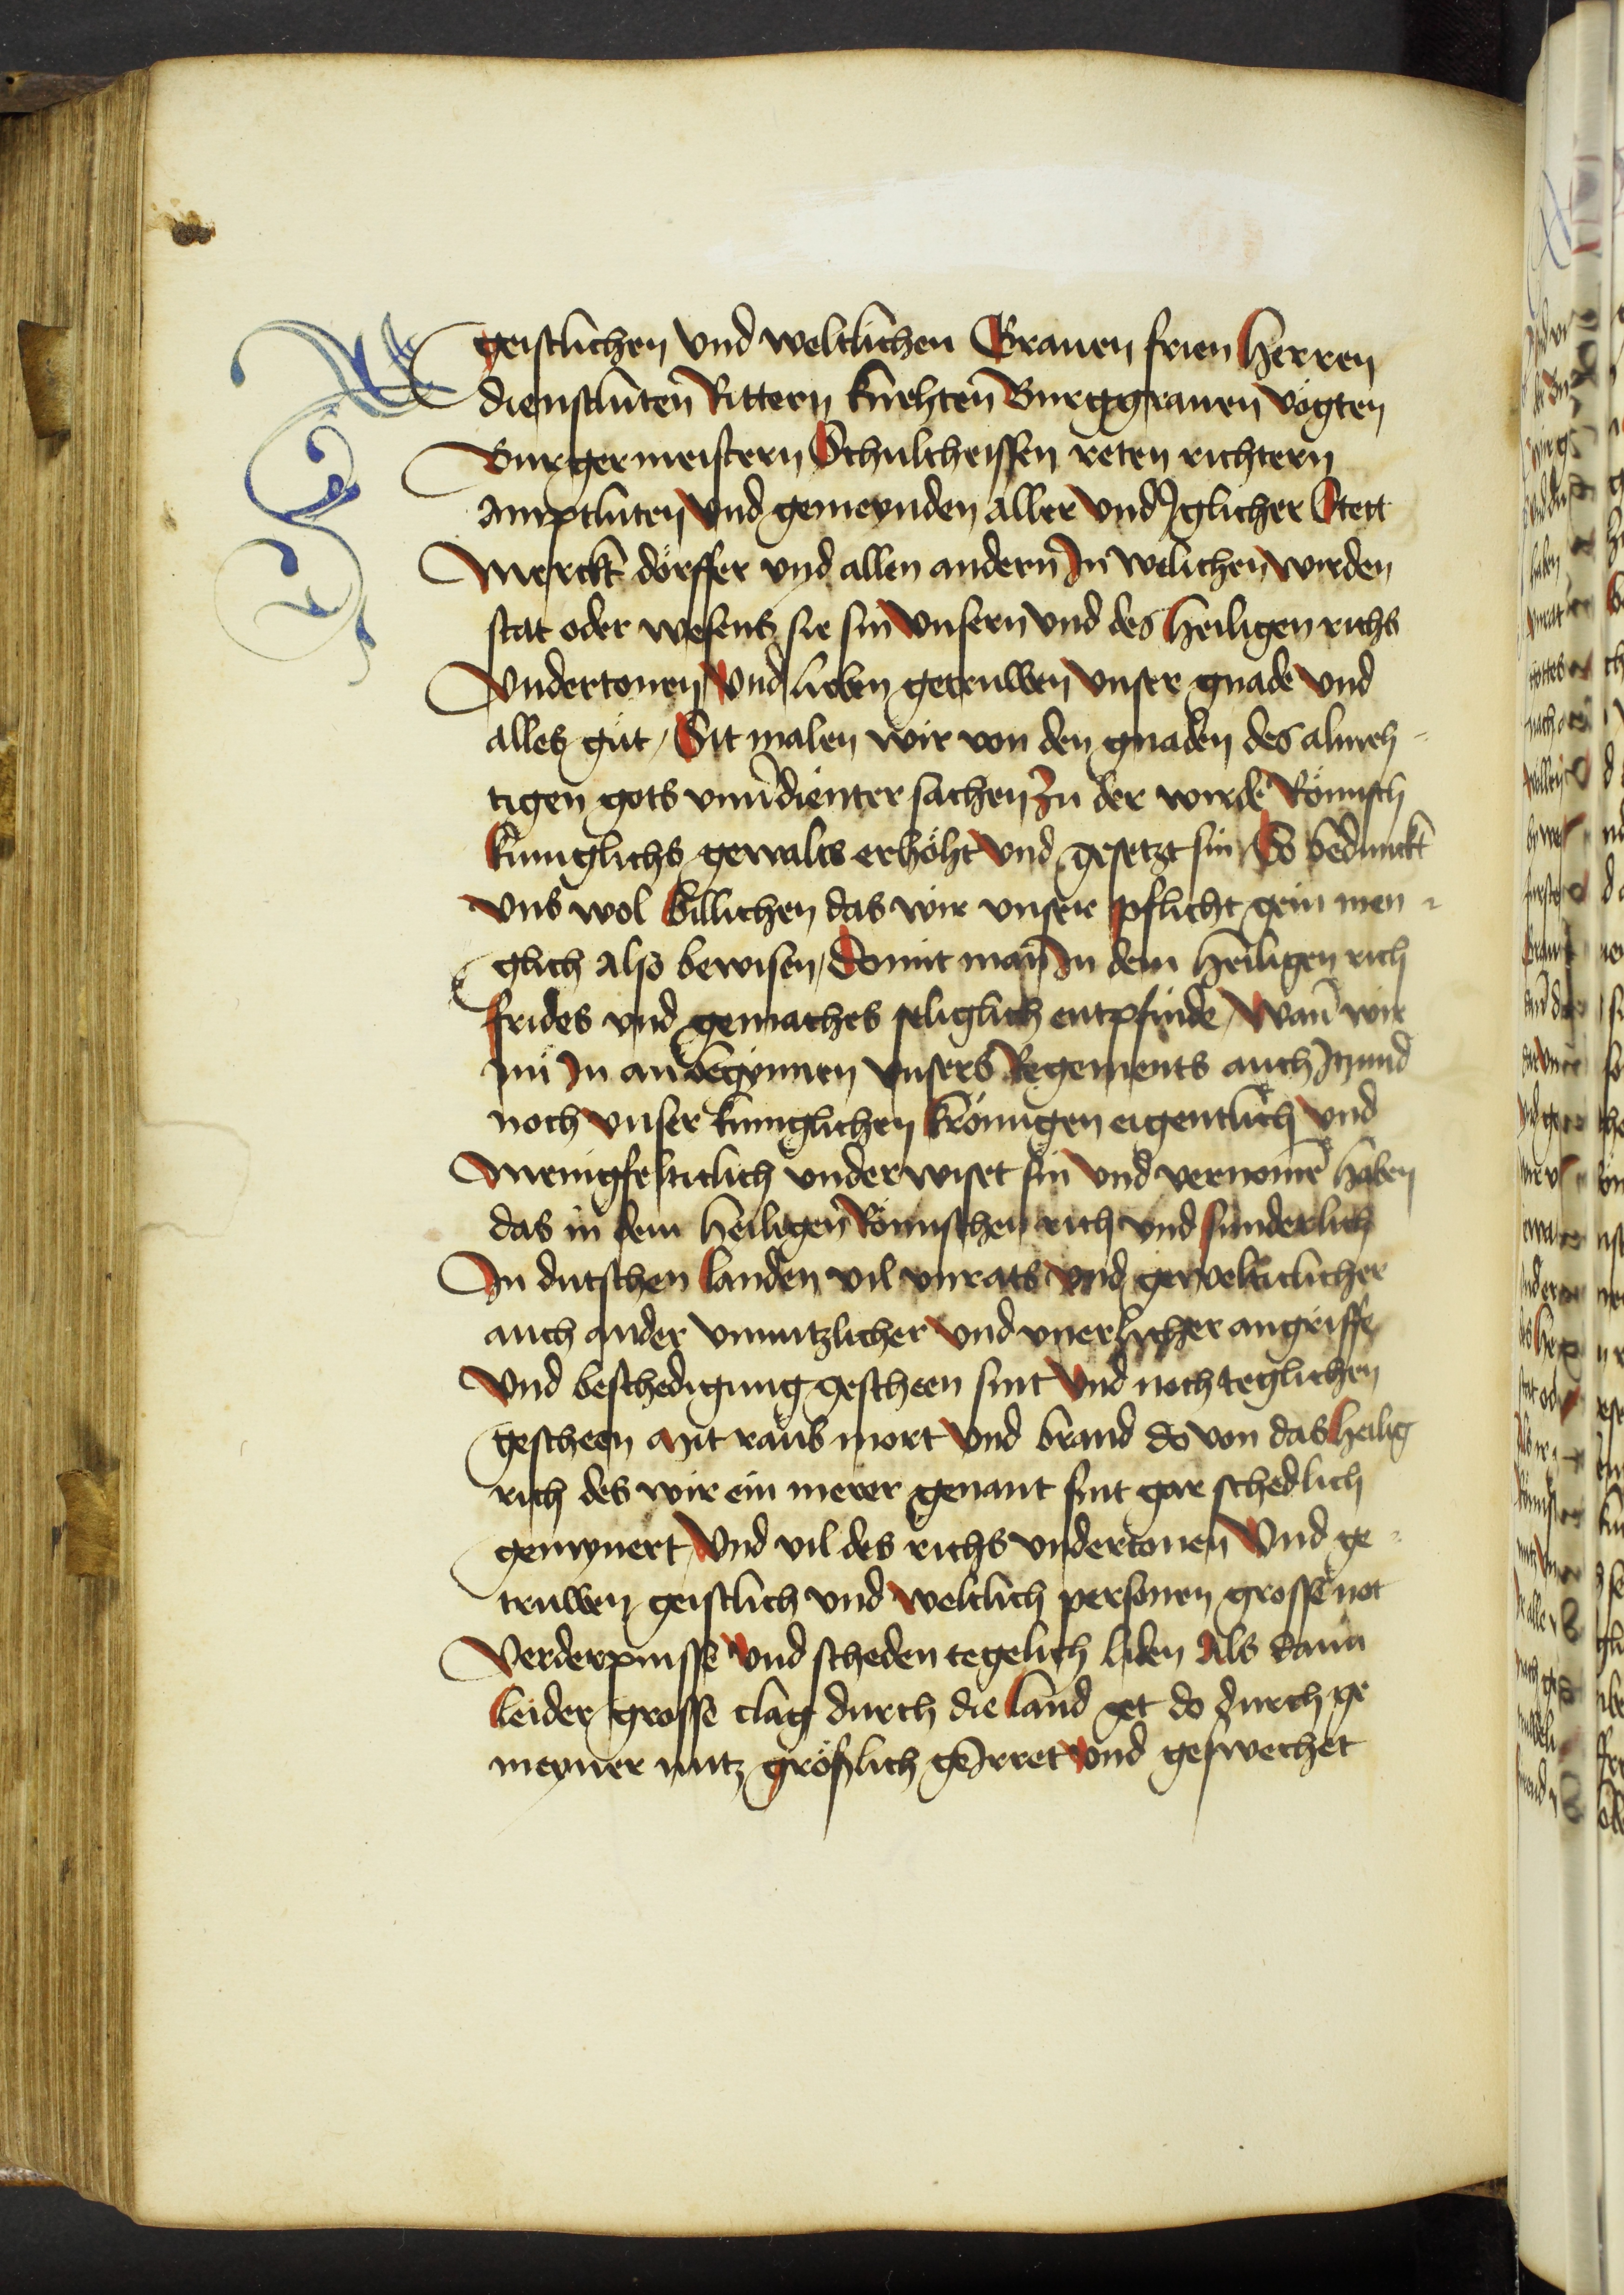 geistlichen vnd weltlichen Grauen frien herren
dienstluten Rittern knehten Burggrauen vögten
Burgermeistern Schultheissen reten richtern
amptluten vnd gemeynden aller vnd Jglicher Stett
Merckt dörffer vnd allen andern Jn welichen wirden
stat oder wesens sie sin vnsern vnd des heiligen richs
Vndertonen vnd lieben getruwen vnser gnade vnd
alles gut / Sit malen wir von den gnaden des almeh-
tigen gots vnuerdienter sachen Zu der wirde Römisch
kuniglichs gewalts erhöht vnd gesetzt sin / So bedunckt
vns wol billichen das wir vnser pflicht gein men-
glich also bewisen / Domit man Jn dem heiligen rich
frides vnd gemaches seliglich entpfinde / Wan̄ wir
nu Jn anbegynnen vnsers Regements auch Jtzund
noch vnser kuniglichen krönügen eigentlich vnd
Menigfeltitlich vnderwiset sin vnd vernomē haben
das in dem heiligen Römischen rich vnd sunderlich
Jn dutschen landen vil vnrats vnd geweltitlicher
auch ander vnnutzlicher vnd vnerlicher angriffe
Vnd beschedigung gescheen sint Vnd noch teglichen
gescheen mit raub mort vnd brand do von das heilig
rich des wir ein merer genant sint gar schedlich
gemynert / Vnd vil des richs vndertonen Vnd ge-
truwen geistlich vnd weltlich personen grosse not
Verderpnisse vnd scheden tegelich liden Als dann
leider grosse clag durch die land get do durch ge
meyner nutz gröslich geJrret vnd geswechet